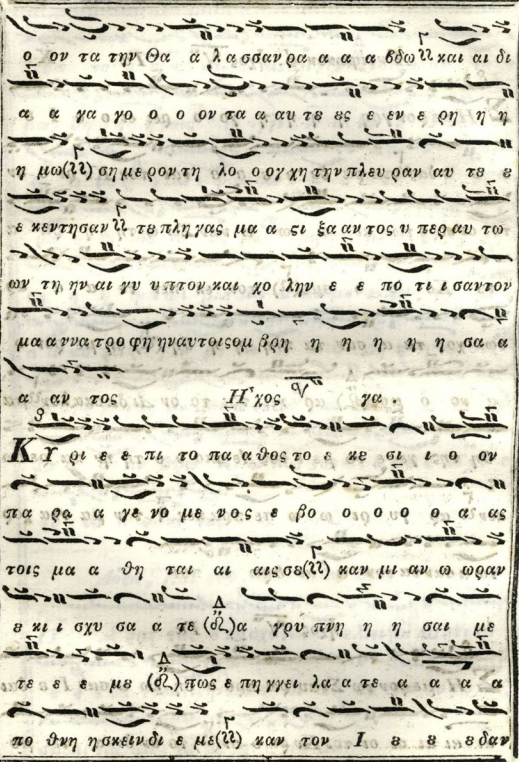 ο ον τα την Θα α λασσαν ρα α α α βδω και αι δι
α α γα γο ο ο ον τα α αυ τȣ ȣς ε εν ε ρη η η
η μω( ) ση με ρον τη λο ο ογ χη την πλευ ραν αυ τȣ ȣ
ε κεντησαν τȣ πλη γας μα α ςι ξα αν τος υ περ αυ τω
ων τη ην αι γυ υπτον και χο λην ε ε πο τι ι σαντον
μα αννα τρο φη ηναυτοιςομ βρη η η η η η η σα α
α αν τος Ηχος γα
Κ Υ ρι ε ε πι το πα α θος το ε κε σι ι ο ον
πα ρα α γε νο με νο ς ε βο ο ο ο ο α ας
τοις μα α θη ται αι αις σε( ) καν μι αν ω ωραν
ε κι ι σχυ σα α τε ( )α γρυ πνη η η σαι με
τε ε ε μȣ ( ) πως ε πη γγει λα α τε α α α α
πο θνη ησκειν δι ε με( ) καν τον Ι ȣ ȣ ȣδαν